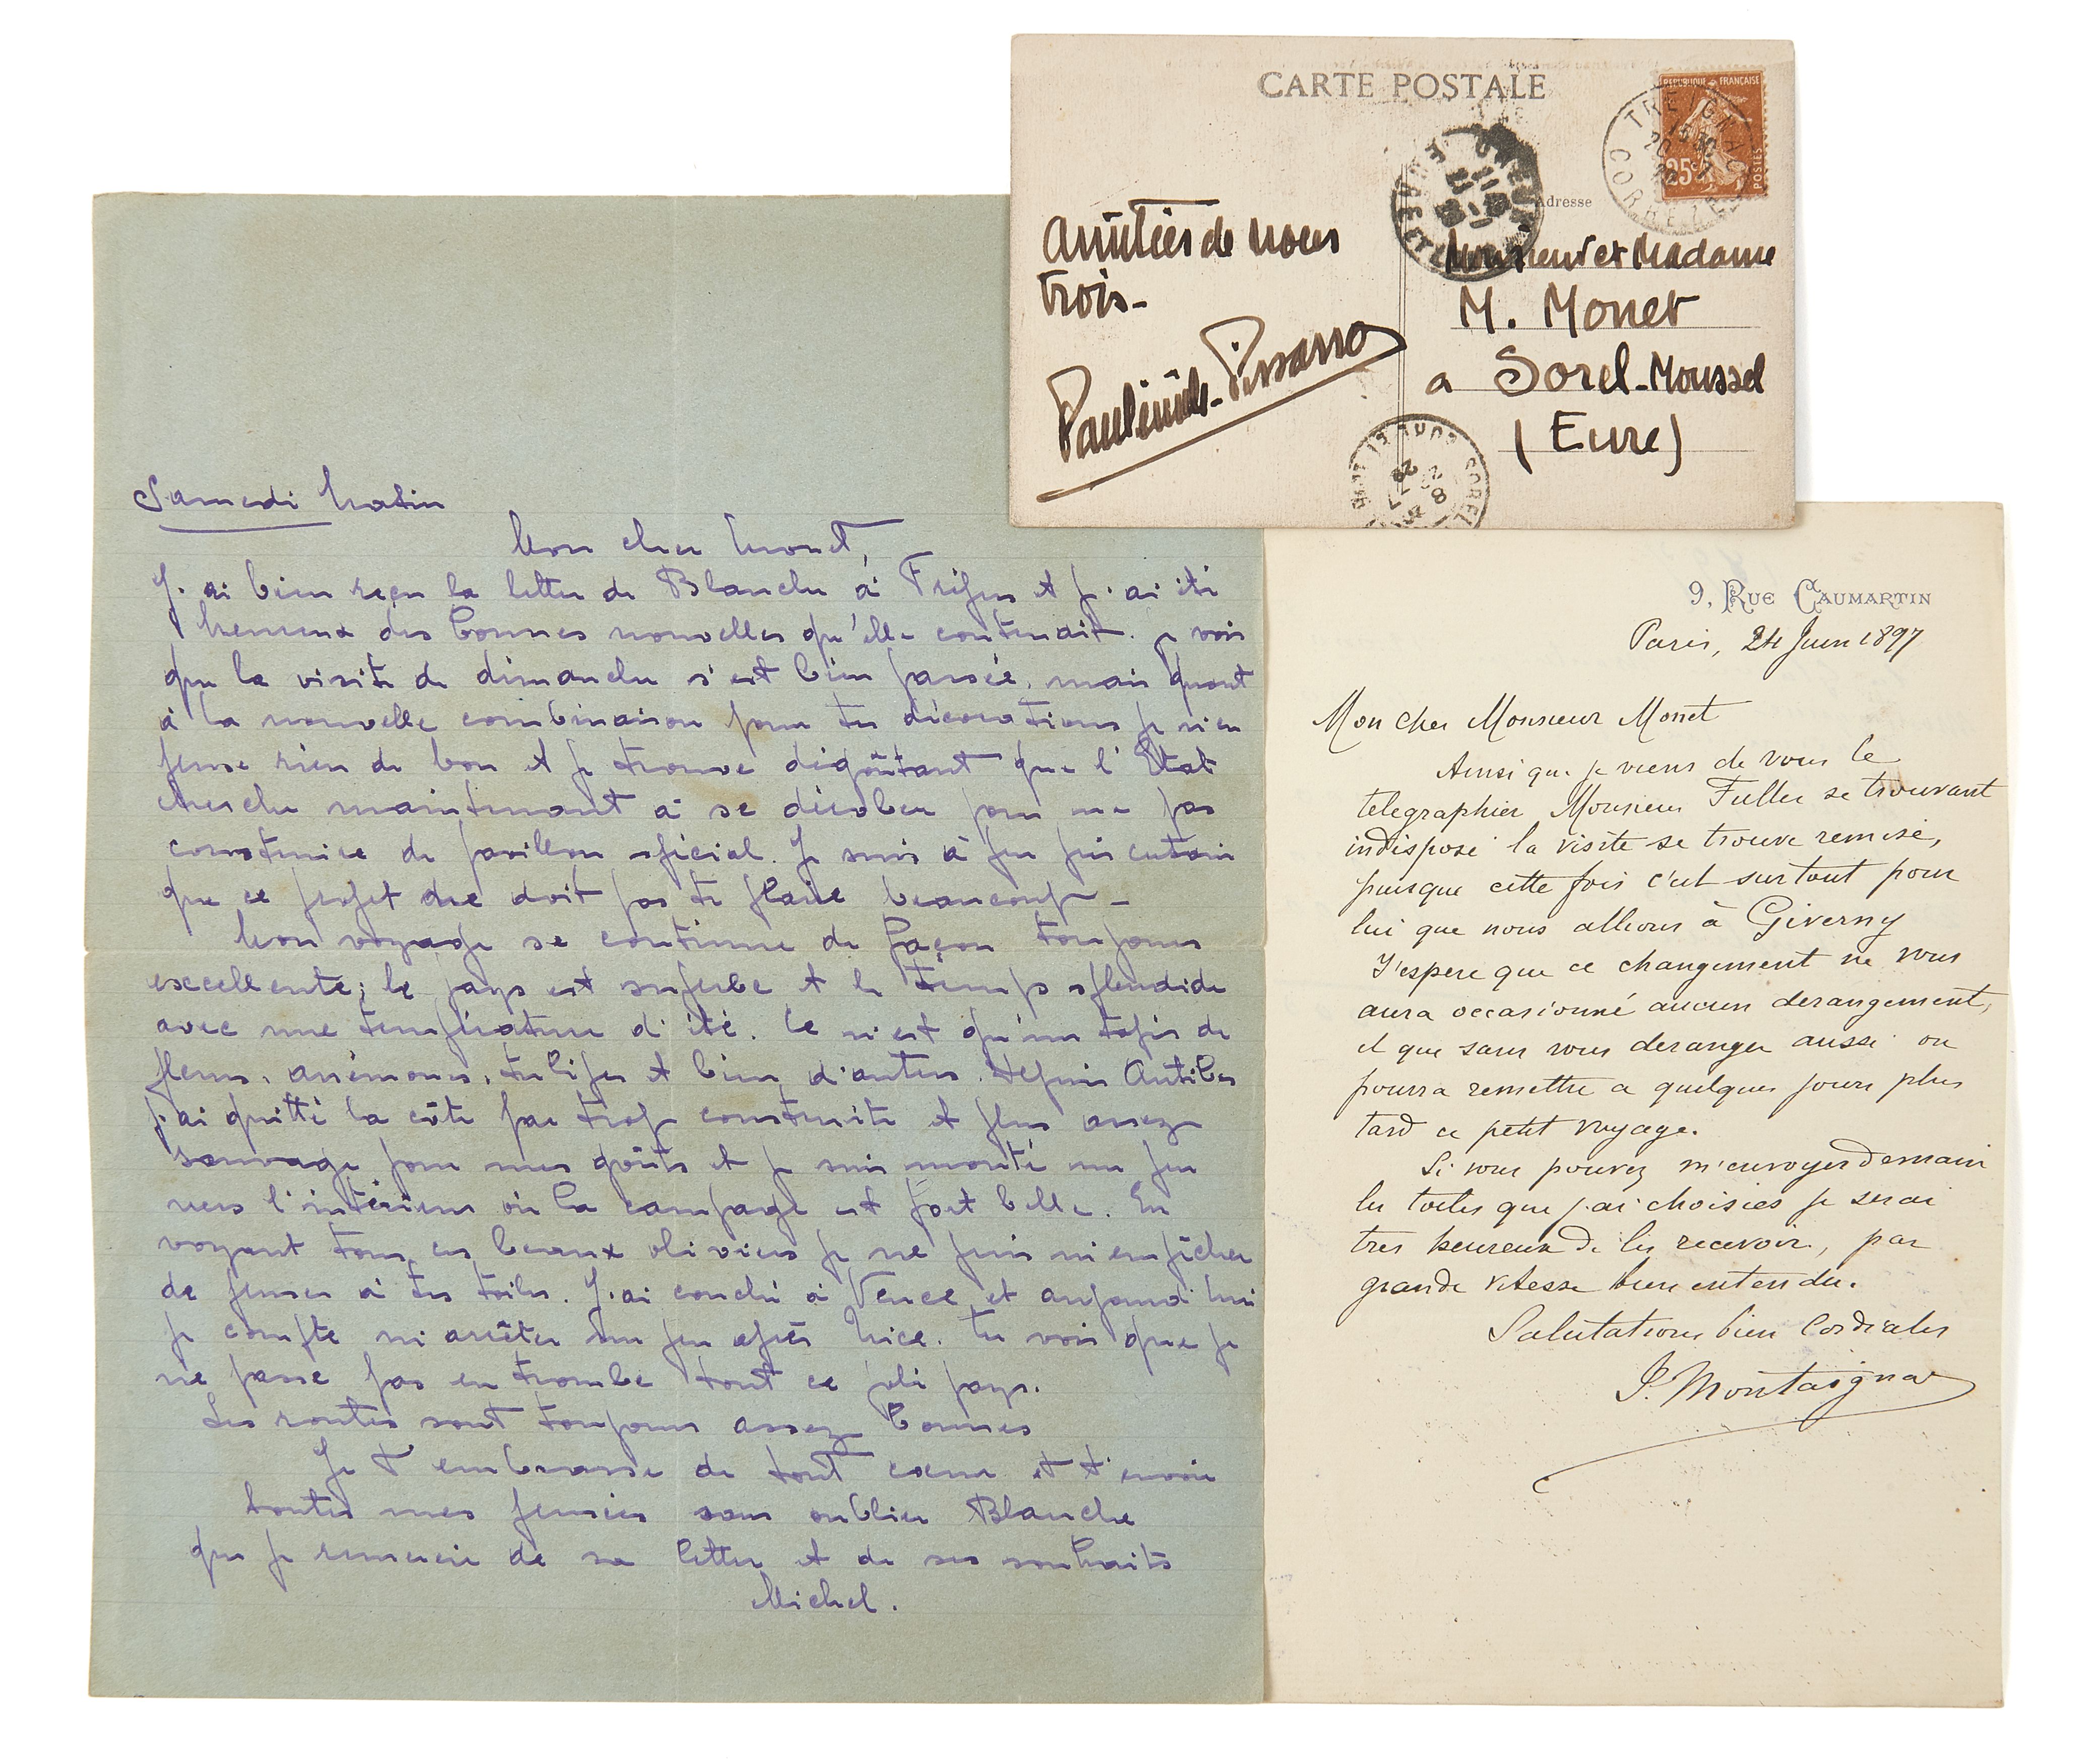 CARTE POSTALE
Adresse
REPUBLIQUE FRANCAISE
25c
POSTES
TREIGNAC
CORREZE
Amitiés de nous
trois-
Paulémile-Pissarro
Monsieur et Madame
M. Monet
a Sorel-Moussel
(Eure)
Samedi Matin
Mon cher Monet,
J'ai bien reçu la lettre de Blanche à Fréjus et j'ai été
heureux des bonnes nouvelles qu'elle contenait. Je vois
que la visite de dimanche s'est bien passée, mais quant
à la nouvelle combinaison pour tes décorations je n'en
pense rien de bon et je trouve dégoûtant que l'Etat
cherche maintenant à se dérober pour ne pas
construire de pavillon oficiel. Je suis à peu près certain
que ce projet doit pas te plaire beaucoup -
Mon voyage se continue de façon toujours
excellente; le pays est superbe et le temps splendide
avec une température d'été. Ce n'est qu'un tapis de
fleurs, anémones, tulipes et bien d'autres. Depuis Antibes
j'ai quitté la côte par trop construite et plus assez
sauvage pour mes goûts et je suis monté un peu
vers l'intérieur où la campagne est fort belle. En
voyant tous ces beaux oliviers je ne puis m'empêcher
de penser à tes toiles. J'ai couché à Vence et aujourd'hui
je compte m'arrêter un peu après Nice. Tu vois que je
ne passe pas en trombe tout ce joli pays.
Les routes sont toujours assez bonnes
Je t'embrasse de tout cœur et t'envoie
toutes mes pensées sans oublier Blanche
que je remercie de sa lettre et de ses souhaits
Michel.
9, RUE CAUMARTIN
Paris, 24 Juin 1897
Mon cher Monsieur Monet
Ainsi que je viens de vous le
telegraphier Monsieur Fuller se trouvant
indisposé la visite se trouve remise,
puisque cette fois c'est surtout pour
lui que nous allions à Giverny
J'espere que ce changement ne vous
aura occasionné aucun derangement,
et que sans vous deranger aussi on
pourra remettre a quelques jours plus
tard ce petit voyage.
Si vous pouvez m'envoyer demain
les toiles que j'ai choisies je serai
tres heureux de les recevoir, par
grande vitesse bien entendu.
Salutations bien Cordiales
I. Montaignac